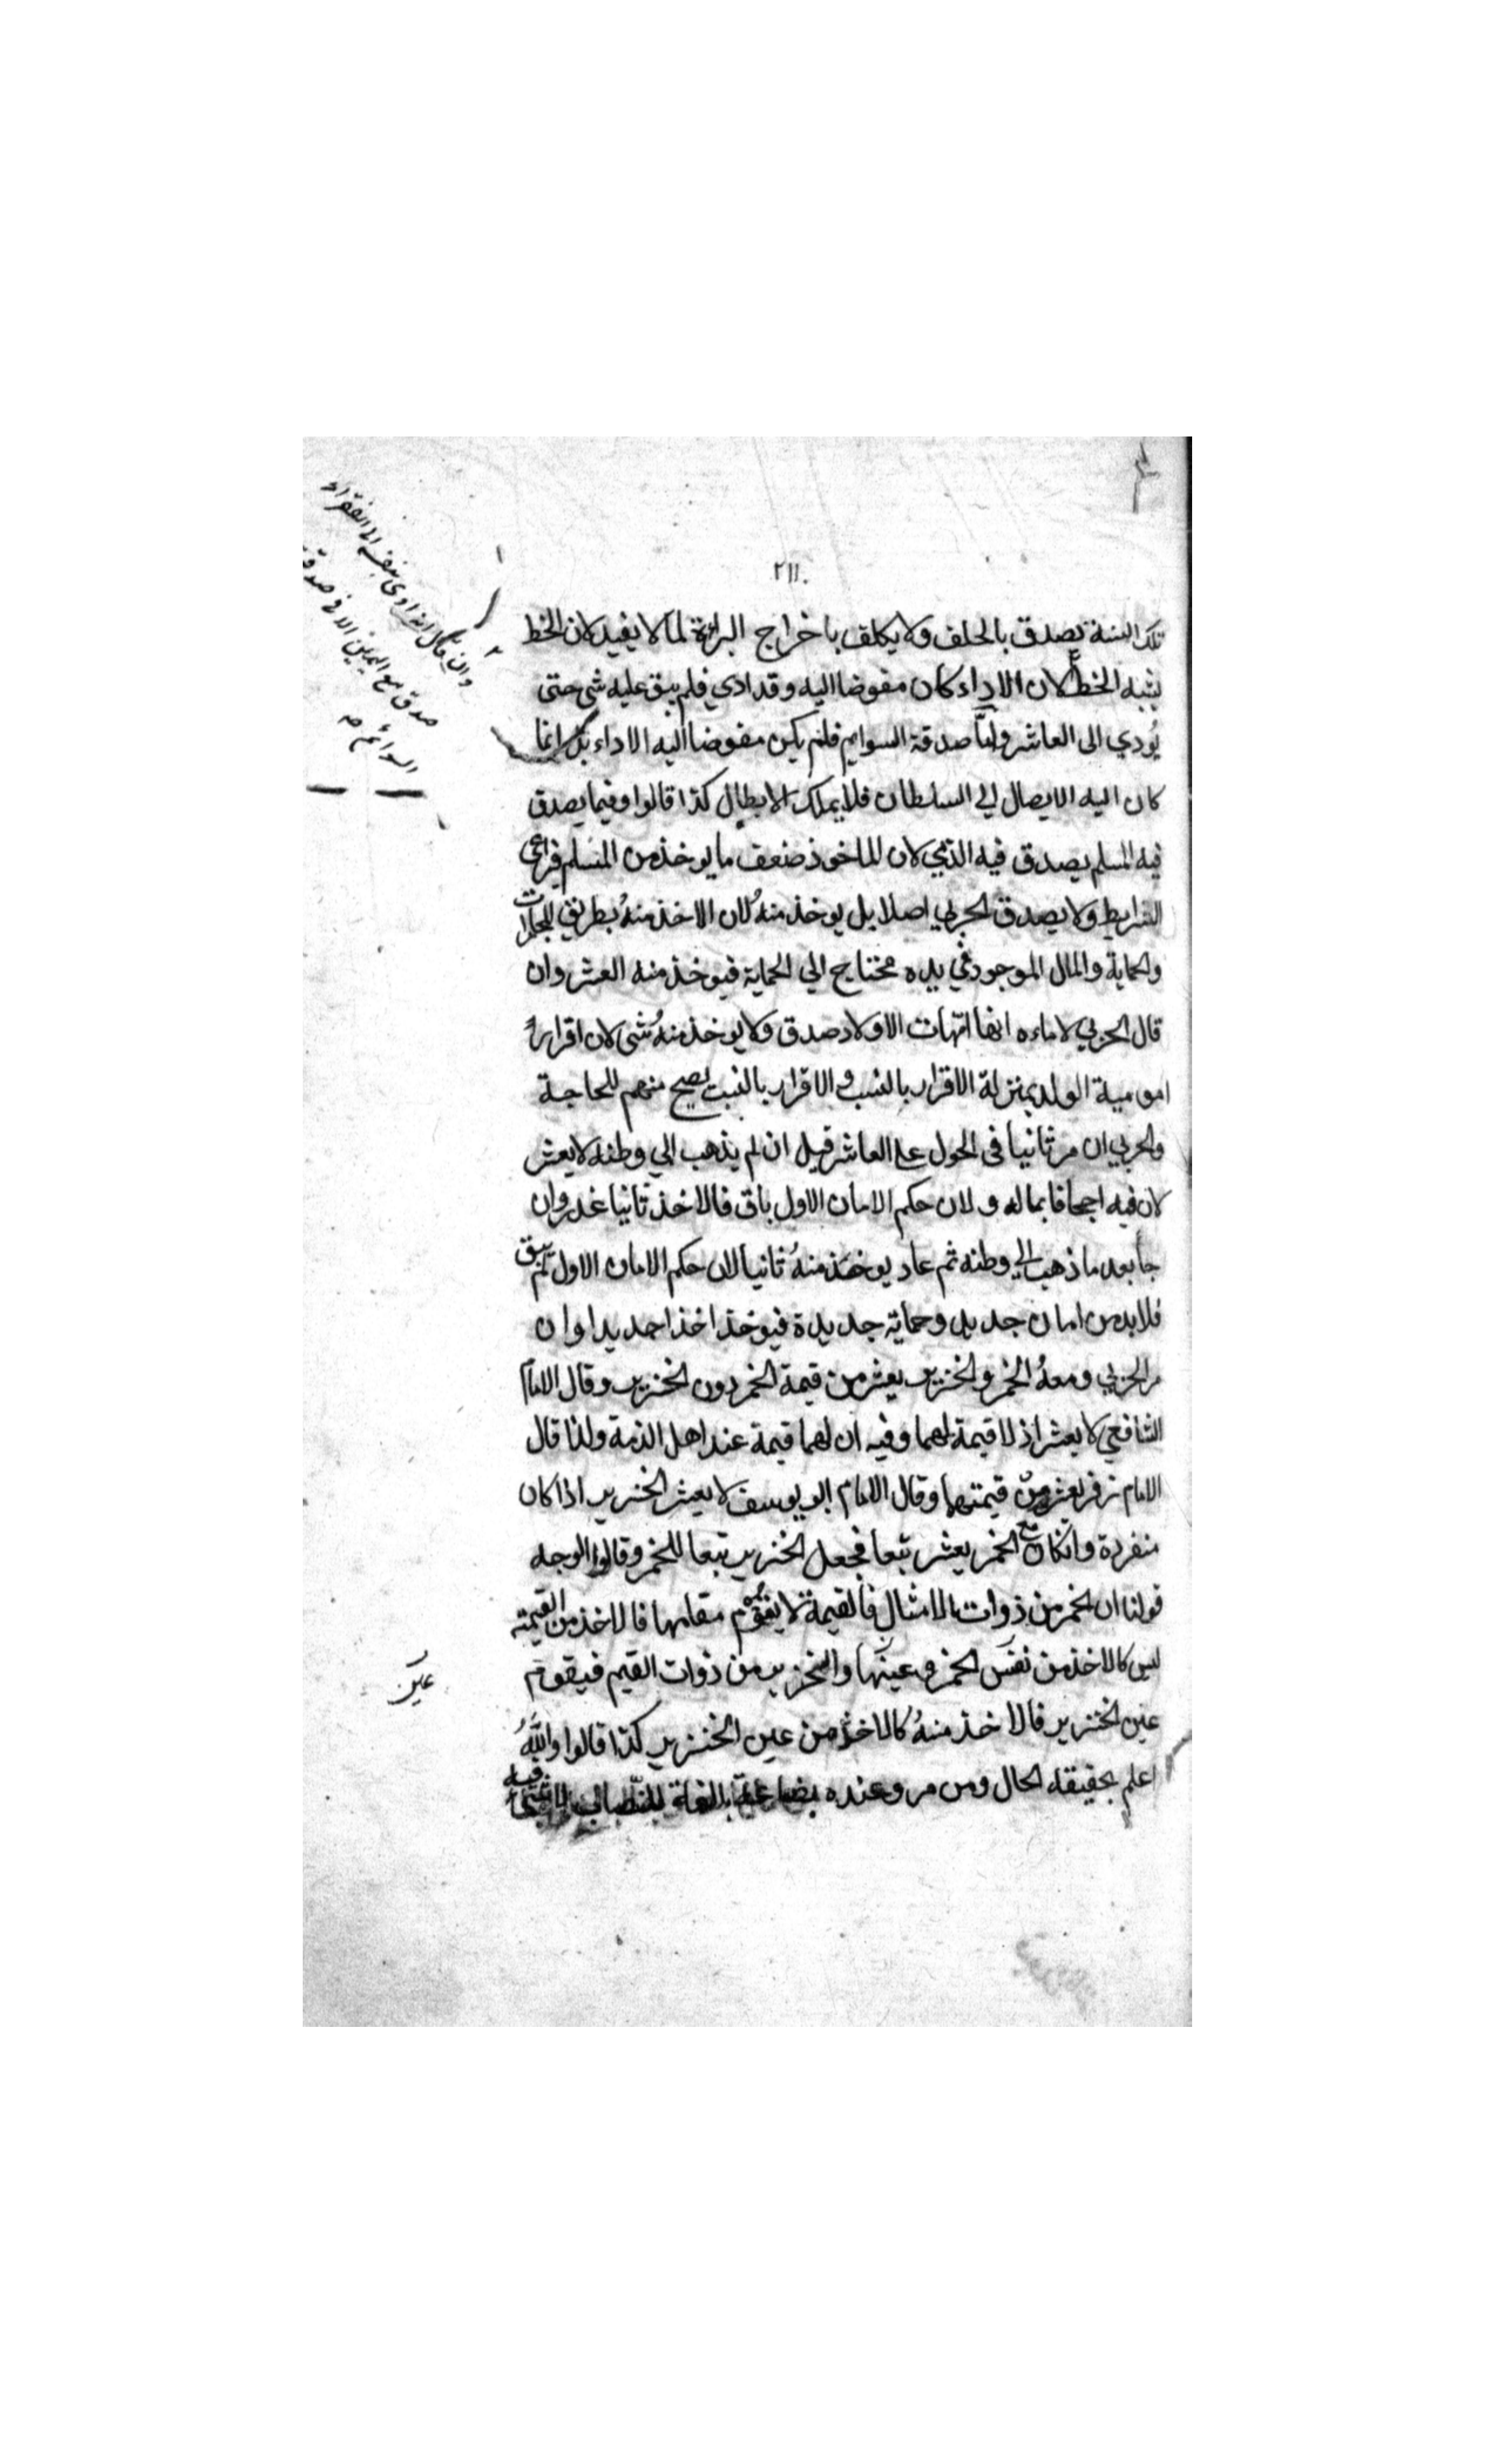 ٢١١.
تلك السنة يصدق بالحلف ولا يكلف باخراج البراءة لما لا يفيد لان الخط
يشبه الخط لان الاداء كان مفوضا اليه وقد ادي فلم يبق عليه شى حتى
يُودي الى العاشر واما صدقة السوايم فلم يكن مفوضا اليه الاداء بل انما
كان اليه الايصال الي السلطان فلا يملك الابطال كذا قالوا وفيما يصدق
فيه المسلم يصدق فيه الذمي لان الماخوذ ضعف ما يوخذ من المسلم فيراعى
الشرايط ولا يصدق الحربي اصلا بل يوخذ منهُ لان الاخذ منهُ بطريق
والحماية والمال الموجود في يده محتاج الي الحماية فيوخذ منه العشر وان
قال الحربي لاماءه انها امهات الاولاد صدق ولا يوخذ منهُ شى لان اقراره
امومية الولد بمنزلة الاقرار بالنسب والاقرار بالنسب يصح منهم للحاجة
والحربي ان مر ثانيا فى الحول على العاشر قيل ان لم يذهب الي وطنه لا يعشر
لان فيه اجحافا بماله ولان حكم الامان الاول باق فالاخذ ثانيا غدر وان
جا بعد ما ذهب الي وطنه ثم عاد يوخذ منهُ ثانيا لان حكم الامان الاول لم يبق
فلا بد من امان جديد وحماية جديدة فيوخذ اخذا جديدا وان
مر الحربي ومعهُ الخمر والخنزير يعشر من قيمة الخمر دون الخنزير وقال الامام
الشافعي لا يعشر اذ لا قيمة لهما وفيه ان لهما قيمة عند اهل الذمة ولذا قال
الامام زفر يعشر من قيمتهما وقال الامام ابو يوسف لا يعشر الخنزير اذا كان
منفردة وانكان مع الخمر يعشر تبعا فجعل الخنزير تبعا للخمر وقالوا الوجه
قولنا ان الخمر من ذوات الامثال فالقيمة لا يقوم مقامها فالاخذ من القيمة
ليس كالاخذ من نفس الخمر وعينها والخنزير من ذوات القيم فيقوم
عين الخنزير فالاخذ منهُ كالاخذ من عين الخنزير كذا قالوا واللّٰهُ
اعلم بحقيقة الحال ومن مر وعنده بضاعة بالغة للنصاب
وان قال انه ادى بنفسه الى الفقراء
صدق مع اليمين الا في صدقة
السوائم